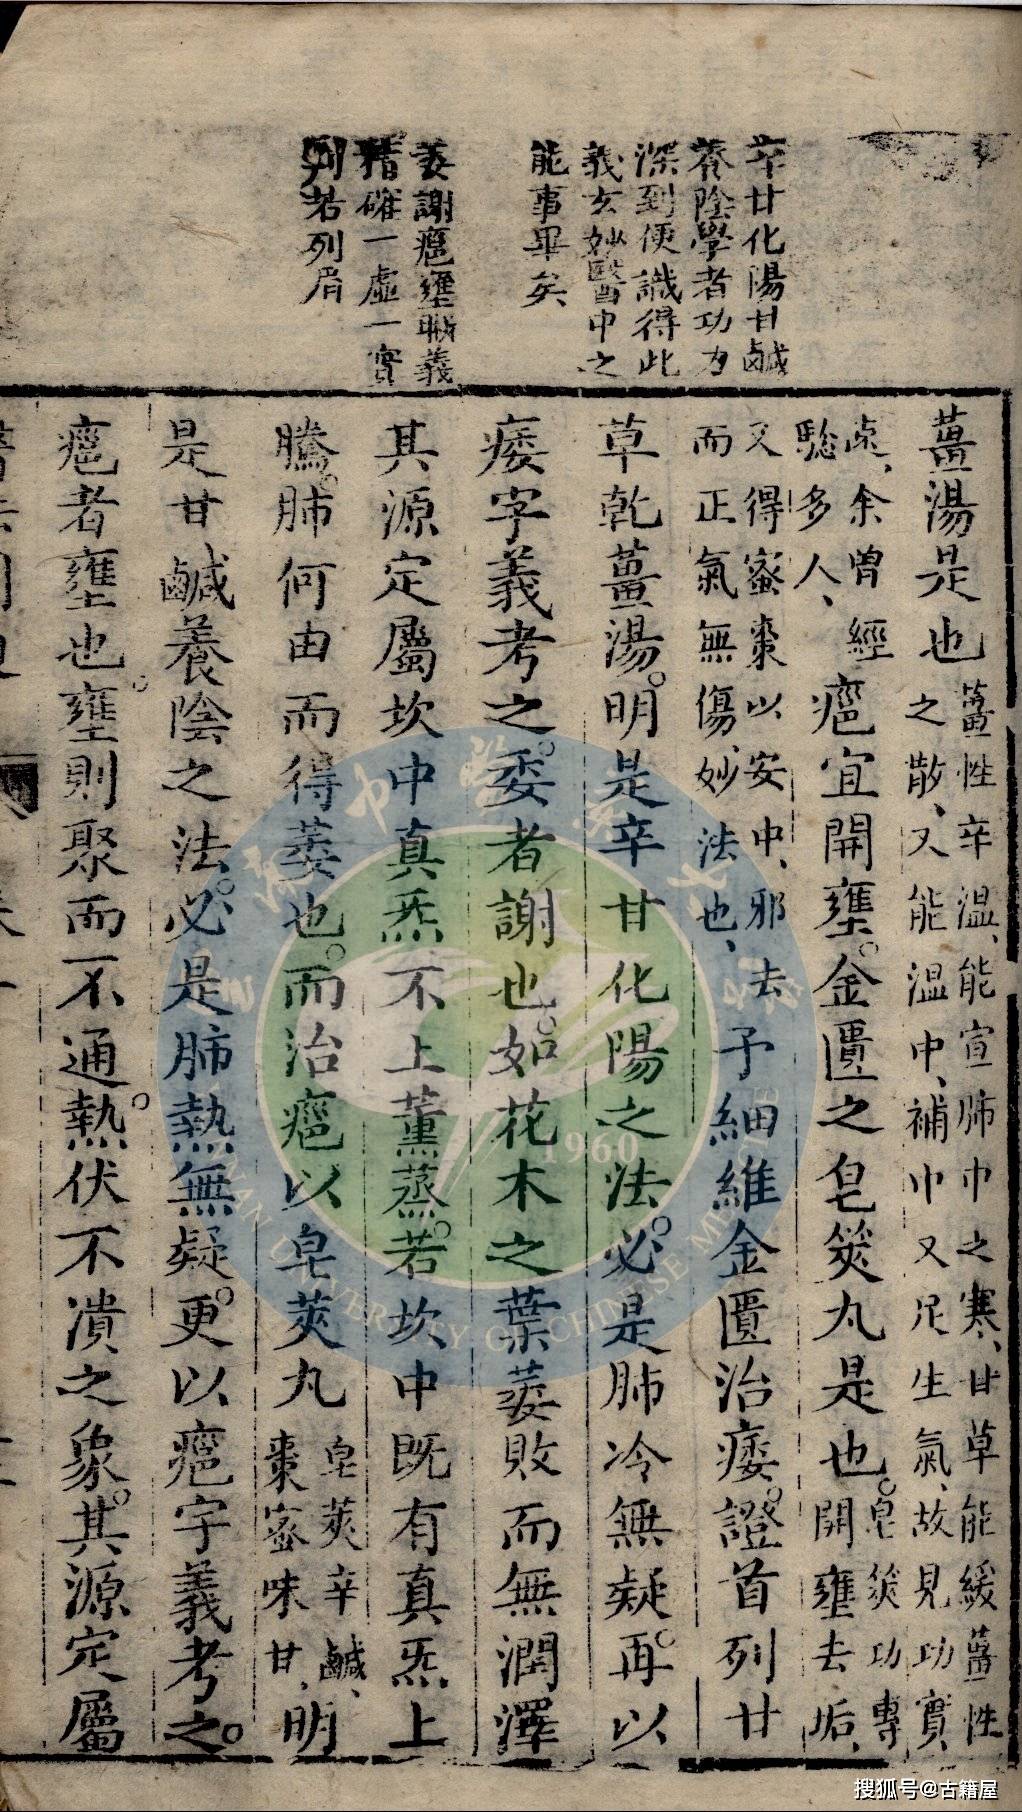 辛甘化陽甘鹹
養陰學者功力
深到便識得此
義玄妙醫中之
能事畢矣
萎謝㿈壅職義
精確一虛一實
判若列眉
薑湯是也
薑性辛溫、能宣肺中之寒、甘草能緩薑性
之散、又能溫中、補中又足生氣、故見功實
余曾經
騐多人、
㿈宜開壅。金匱之皂筴丸是也。
皂筴功專
開壅去垢、
又得蜜棗以安中、邪去
而正氣無傷、妙法也、
予細維金匱治痿。證首列甘
草乾薑湯。明是辛甘化陽之法。必是肺冷無疑。再以
痿字義考之。委者謝也。如花木之葉萎敗而無潤澤
其源定屬坎中真炁不上薰蒸。若坎中既有真炁上
騰。肺何由而得萎也。而治㿈以皂莢丸
皂莢辛鹹、
棗蜜味甘、
明
是甘鹹養陰之法。必是肺熱無疑。更以㿈字義考之。
㿈者壅也。壅則聚而不通。熱伏不潰之象。其源定屬
1960
搜狐号@古籍屋